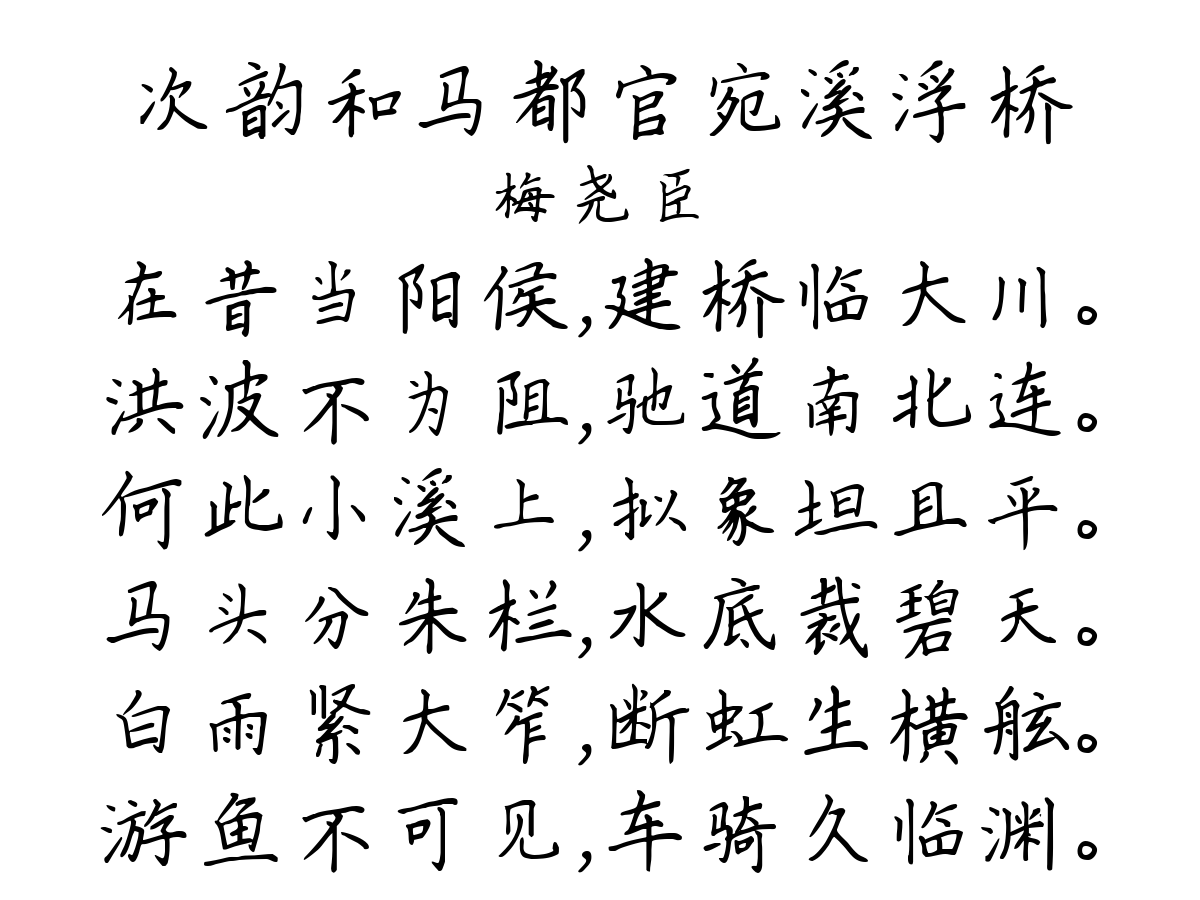 次韵和马都官宛溪浮桥
梅尧臣
在昔当阳侯,建桥临大川。
洪波不为阻,驰道南北连。
何此小溪上,拟象坦且平。
马头分朱栏,水底裁碧天。
白雨紧大笮,断虹生横舷。
游鱼不可见,车骑久临渊。